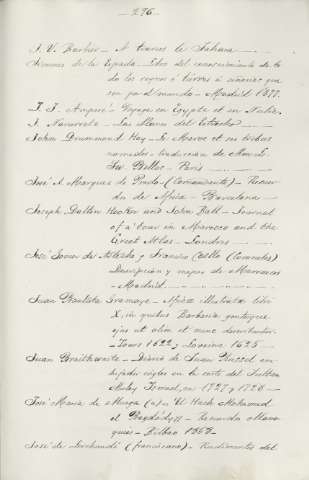 — 296 —
J. V. Barbier — A travers le Sahara
Jimenez de la Espada — Libro del conocimiento de to
dos los reynos é tierras é señorios que
son por el mundo — Madrid 1877.
J. J. Ampère — Voyage en Egypte et en Nubie.
A. Navarrete — Las llaves del Estrecho
John Drummond Hay — Le Maroc et ses tribus
nomades — traduccion de Mme L.
Sw. Belloc — Paris
José A. Marquez de Prado — (Comandante) — Recuer
dos de Africa — Barcelona
Joseph Dalton Hooker and John Ball — Journal
of a tour in Marocco and the
Great Atlas — Londres
José Gomez de Arteche y Francisco Coello (Coroneles)
Descripcion y mapas de Marruecos
— Madrid
Juan Bautista Gramaye — Africa illustrata libri
X, in quibus Barbaria gentesque
ejus ut olim et nunc describuntur.
— Tours 1622 y Lovaina 1625 —
Juan Braithwaite — Diario de Juan Russel em-
bajador inglés en la corte del Sultan
Muley Ismael, en 1727 y 1728 —
José Maria de Murga (a) "El Hach Mohamed
el Bagdády" — Recuerdos Marro
quies — Bilbao 1868 —
José de Lerchundi (franciscano) — Rudimentos del